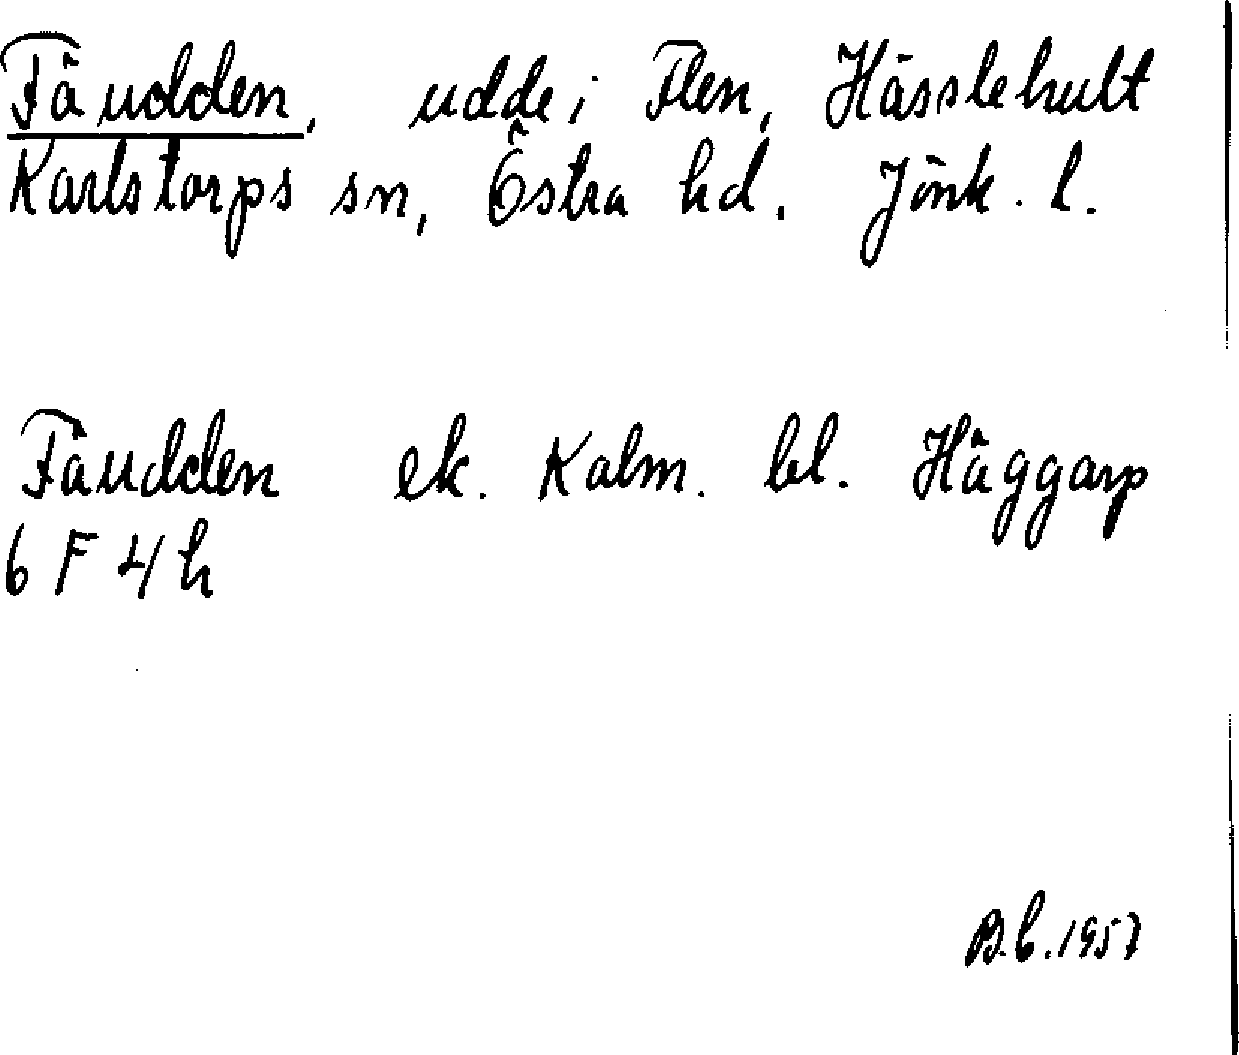 Fäudden, udde i Flen, Hässlehult
Karlstorps sn, Östra hd. Jönk. l.
Fäudden ek. Kalm. bl. Häggarp
6 F 4 h
B.C. 1957